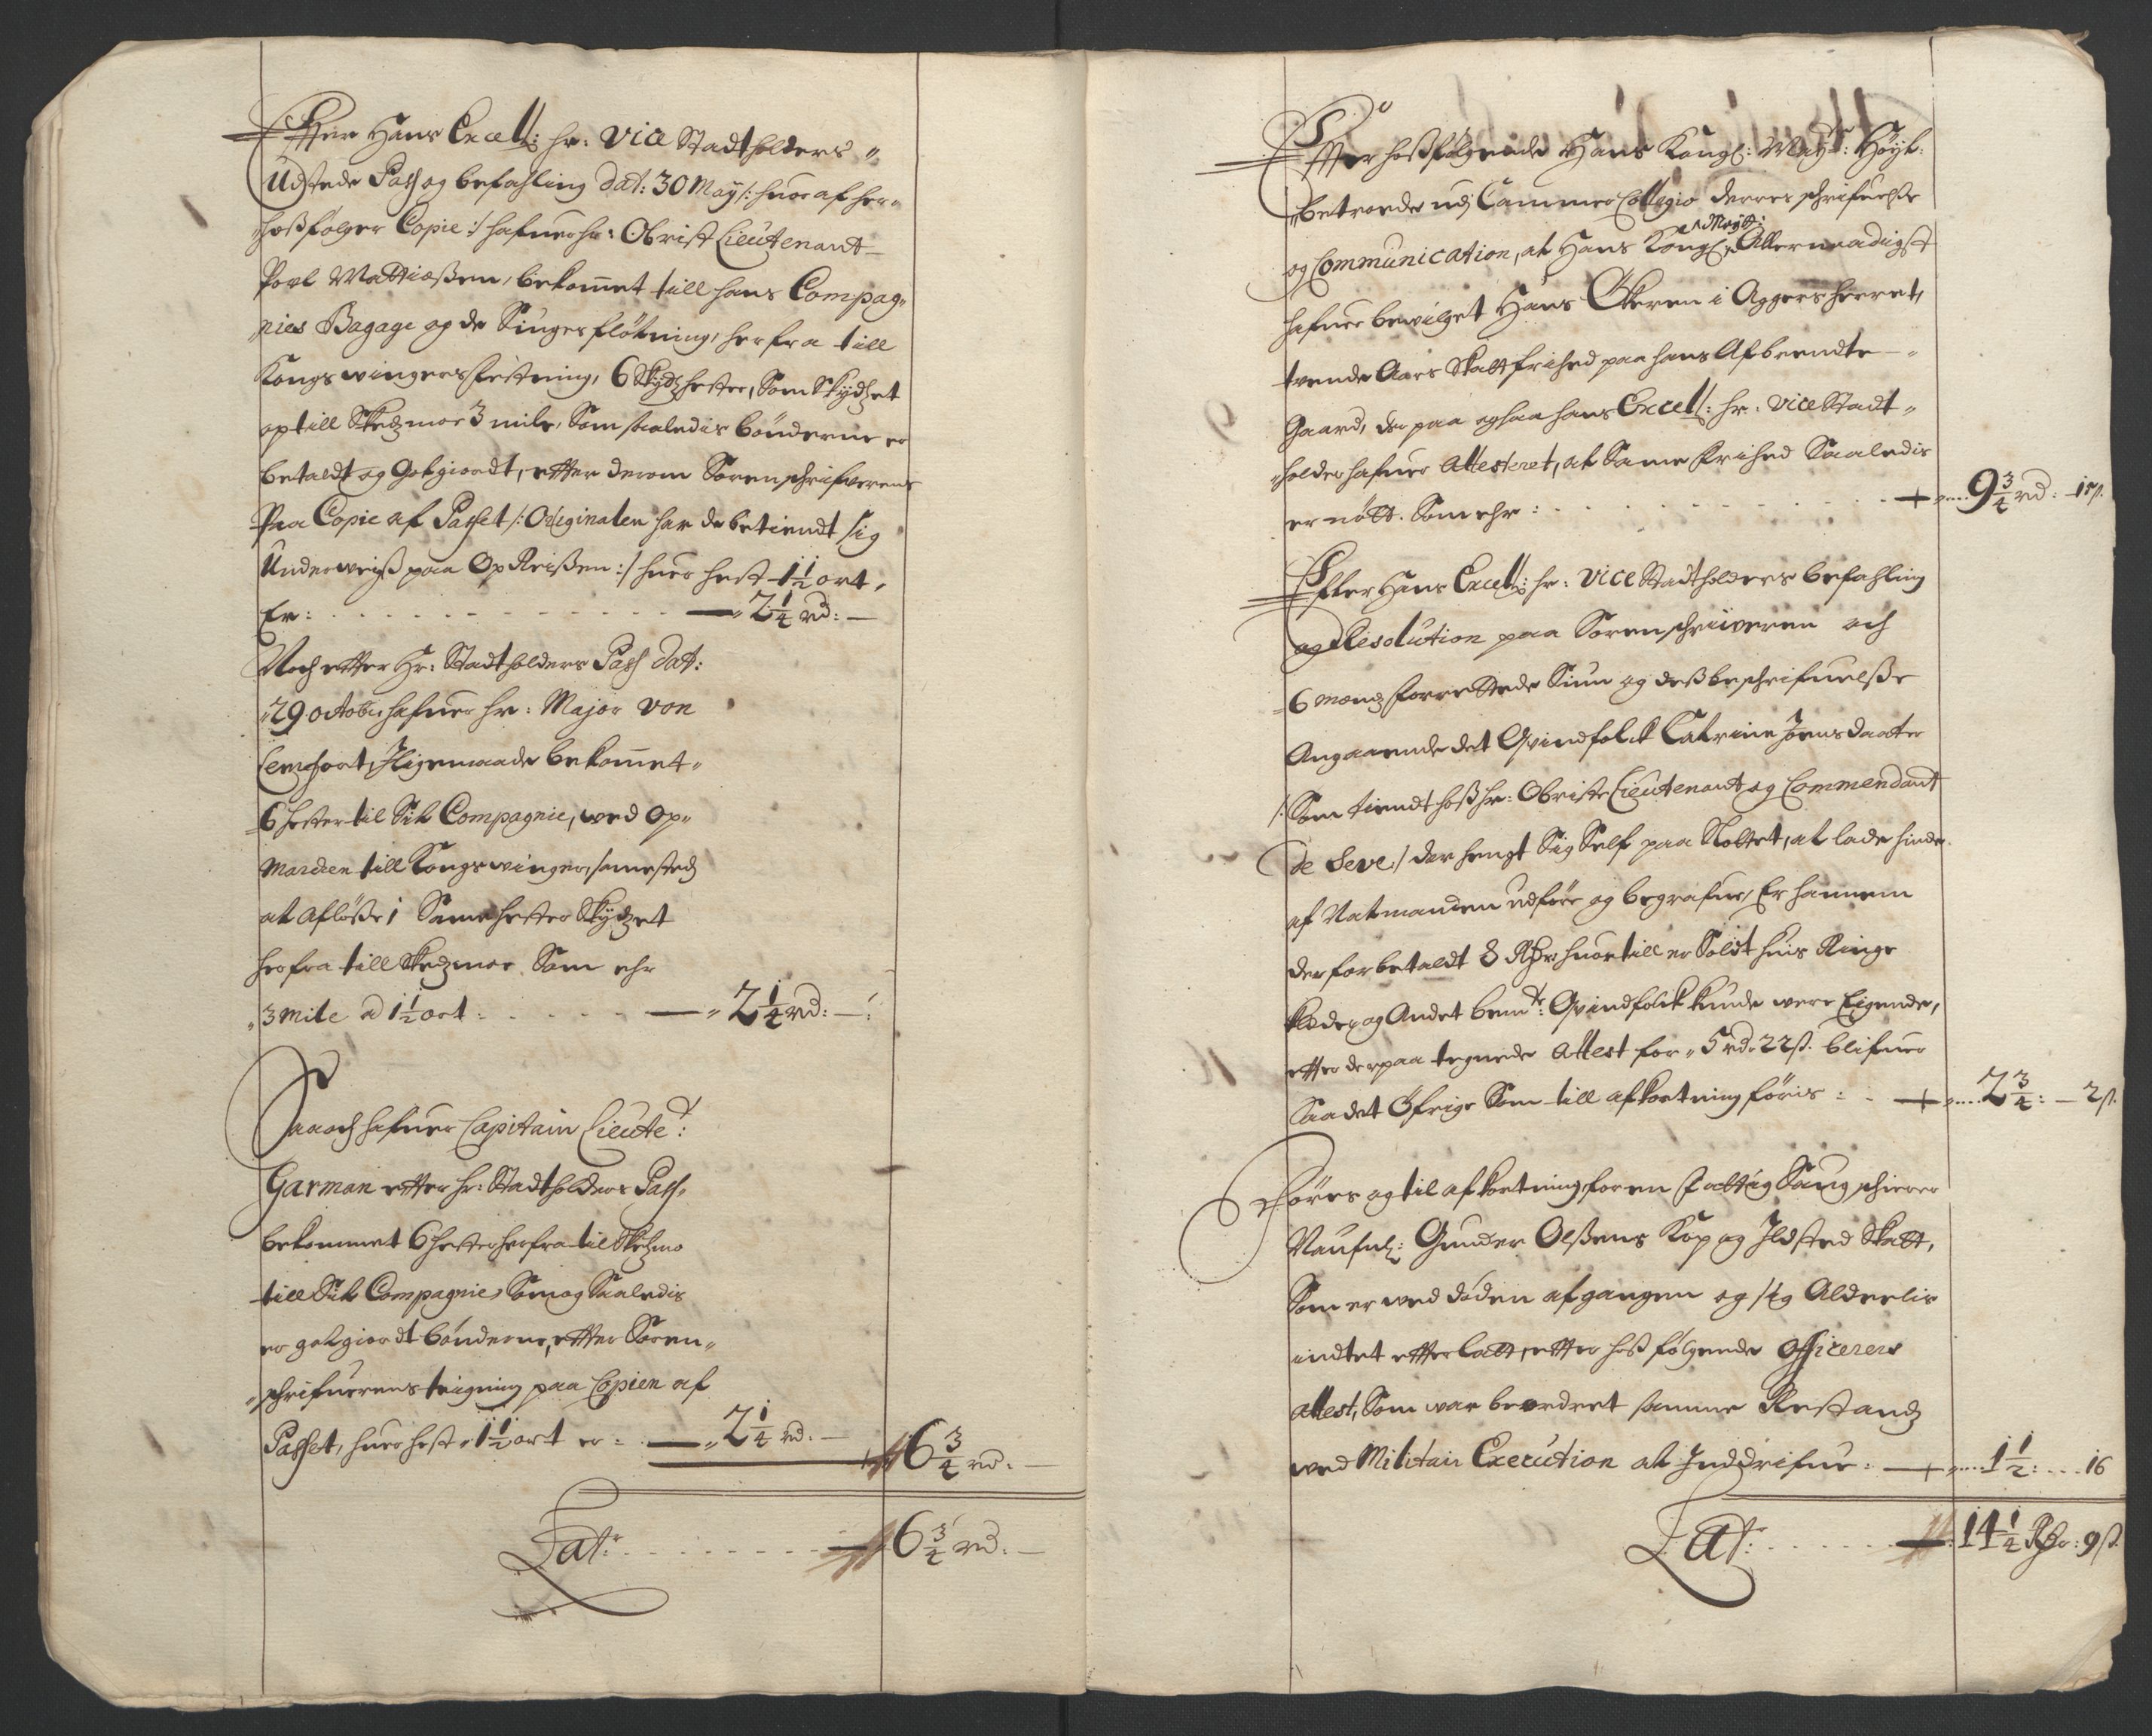 Effter Hans Excell: hr: Vice Stadtholders
Udstede Pass og befahling dat: 30 May /: huor af her
hosfølger Copie :/ hafuer hr: Obrist Lieutenant
Povl Mattiæßen, bekommet till hans Compag
nies Bagage og de Siuges fløtning, her fra till
Kongswingers festning, 6 Skydshester, Som Skydzet
op till Skedzmoe 3 mile, Som saaledis bønderne er
betaldt og Gotgiordt, effter derom Sorenschrifverens
Paa Copie af Passet /: Originalen har de betiendt sig
Underweys paa Op Reißen :/ huer hest 1 1/2 ort,
Er: — 2 1/4 rd: —
Noch effter Hr: Stadtholders Pass dat:
29 octobr hafuer hr: Major von
Lemfort, J ligemaade bekommet
6 hester til Sit Compagnie, wed Op
marchen till Kongswinger, sammesteds
at afløße, Same hester Skydzet
herfra till Skedzmoe Som ehr
3 mile a 1 1/2 ort: — 2 1/4 rd: —
Saa och hafuer Capitain Lieutet:
Garman effter hr: Stadtholders Pass
bekommet 6 hester herfra til Skedzmo
till Sit Compagnie, Som og Saaledis
er gotgiordt bønderne, effter Soren
schrifuerens teigning paa Copien af
Passet, huer hest 1 1/2 ort er: — 2 1/4 rd: — 6 3/4 rd: —
Lat: — 6 3/4 rd: —
Effter hosfølgende Hans Kongl: Mayts: Høyt
betroede udj Cammer Collegio derres schrifuelße
og Communication, at Hans Kongl: Mayt: Allernaadigst
hafuer bewilget Hans Økeren i Aggersherret,
trende Aars Skatt frihed paa hans Afbrendte
Gaard, der paa ogsaa hans Excell: hr: Vice Stadt
holder hafuer Attesteret, at Same frihed Saaledis
er nøtt. Som ehr: — 9 3/4 rd: 15 s.
Effter Hans Excell: hr: Vice Stadtholders befahling
og Resolution paa Sorenschriiveren och
6 mends forrettede Siun og desbeschrifuelße
Angaaende det Qvindfolck Catrine Joensdaatter
/: Som tiendt hos hr: Obriste Lieutenant og Commendant
de Seve :/ der hengt Sig Self paa Slottet, at lade hinde
af Natmanden udføre og begrafue, Er hannem
derfor betaldt 8 Rdr huortill er Soldt huis Ringe
kleder og Andet bemte: Qvindfolck kunde were Eigende,
effter derpaa tegnede Attest for 5 rd. 22 s. blifuer
Saa det Øfrige Som till afkortning føris: — 2 3/4: — 2 s.
Føres og til afkortning for en fattig Saugschierer
Naufnl: Gunder Olßens Kop og Jldsted Skatt,
Som er wed døden afgangen og sig Alderlis
indtet effterlatt, effter hosfølgende Officerers
Attest, Som war beordret samme Restands
wed Militair Execution at Inddrifue: — 1 1/2: — 16
Lat: — 14 1/4 Rdr: 9 s.